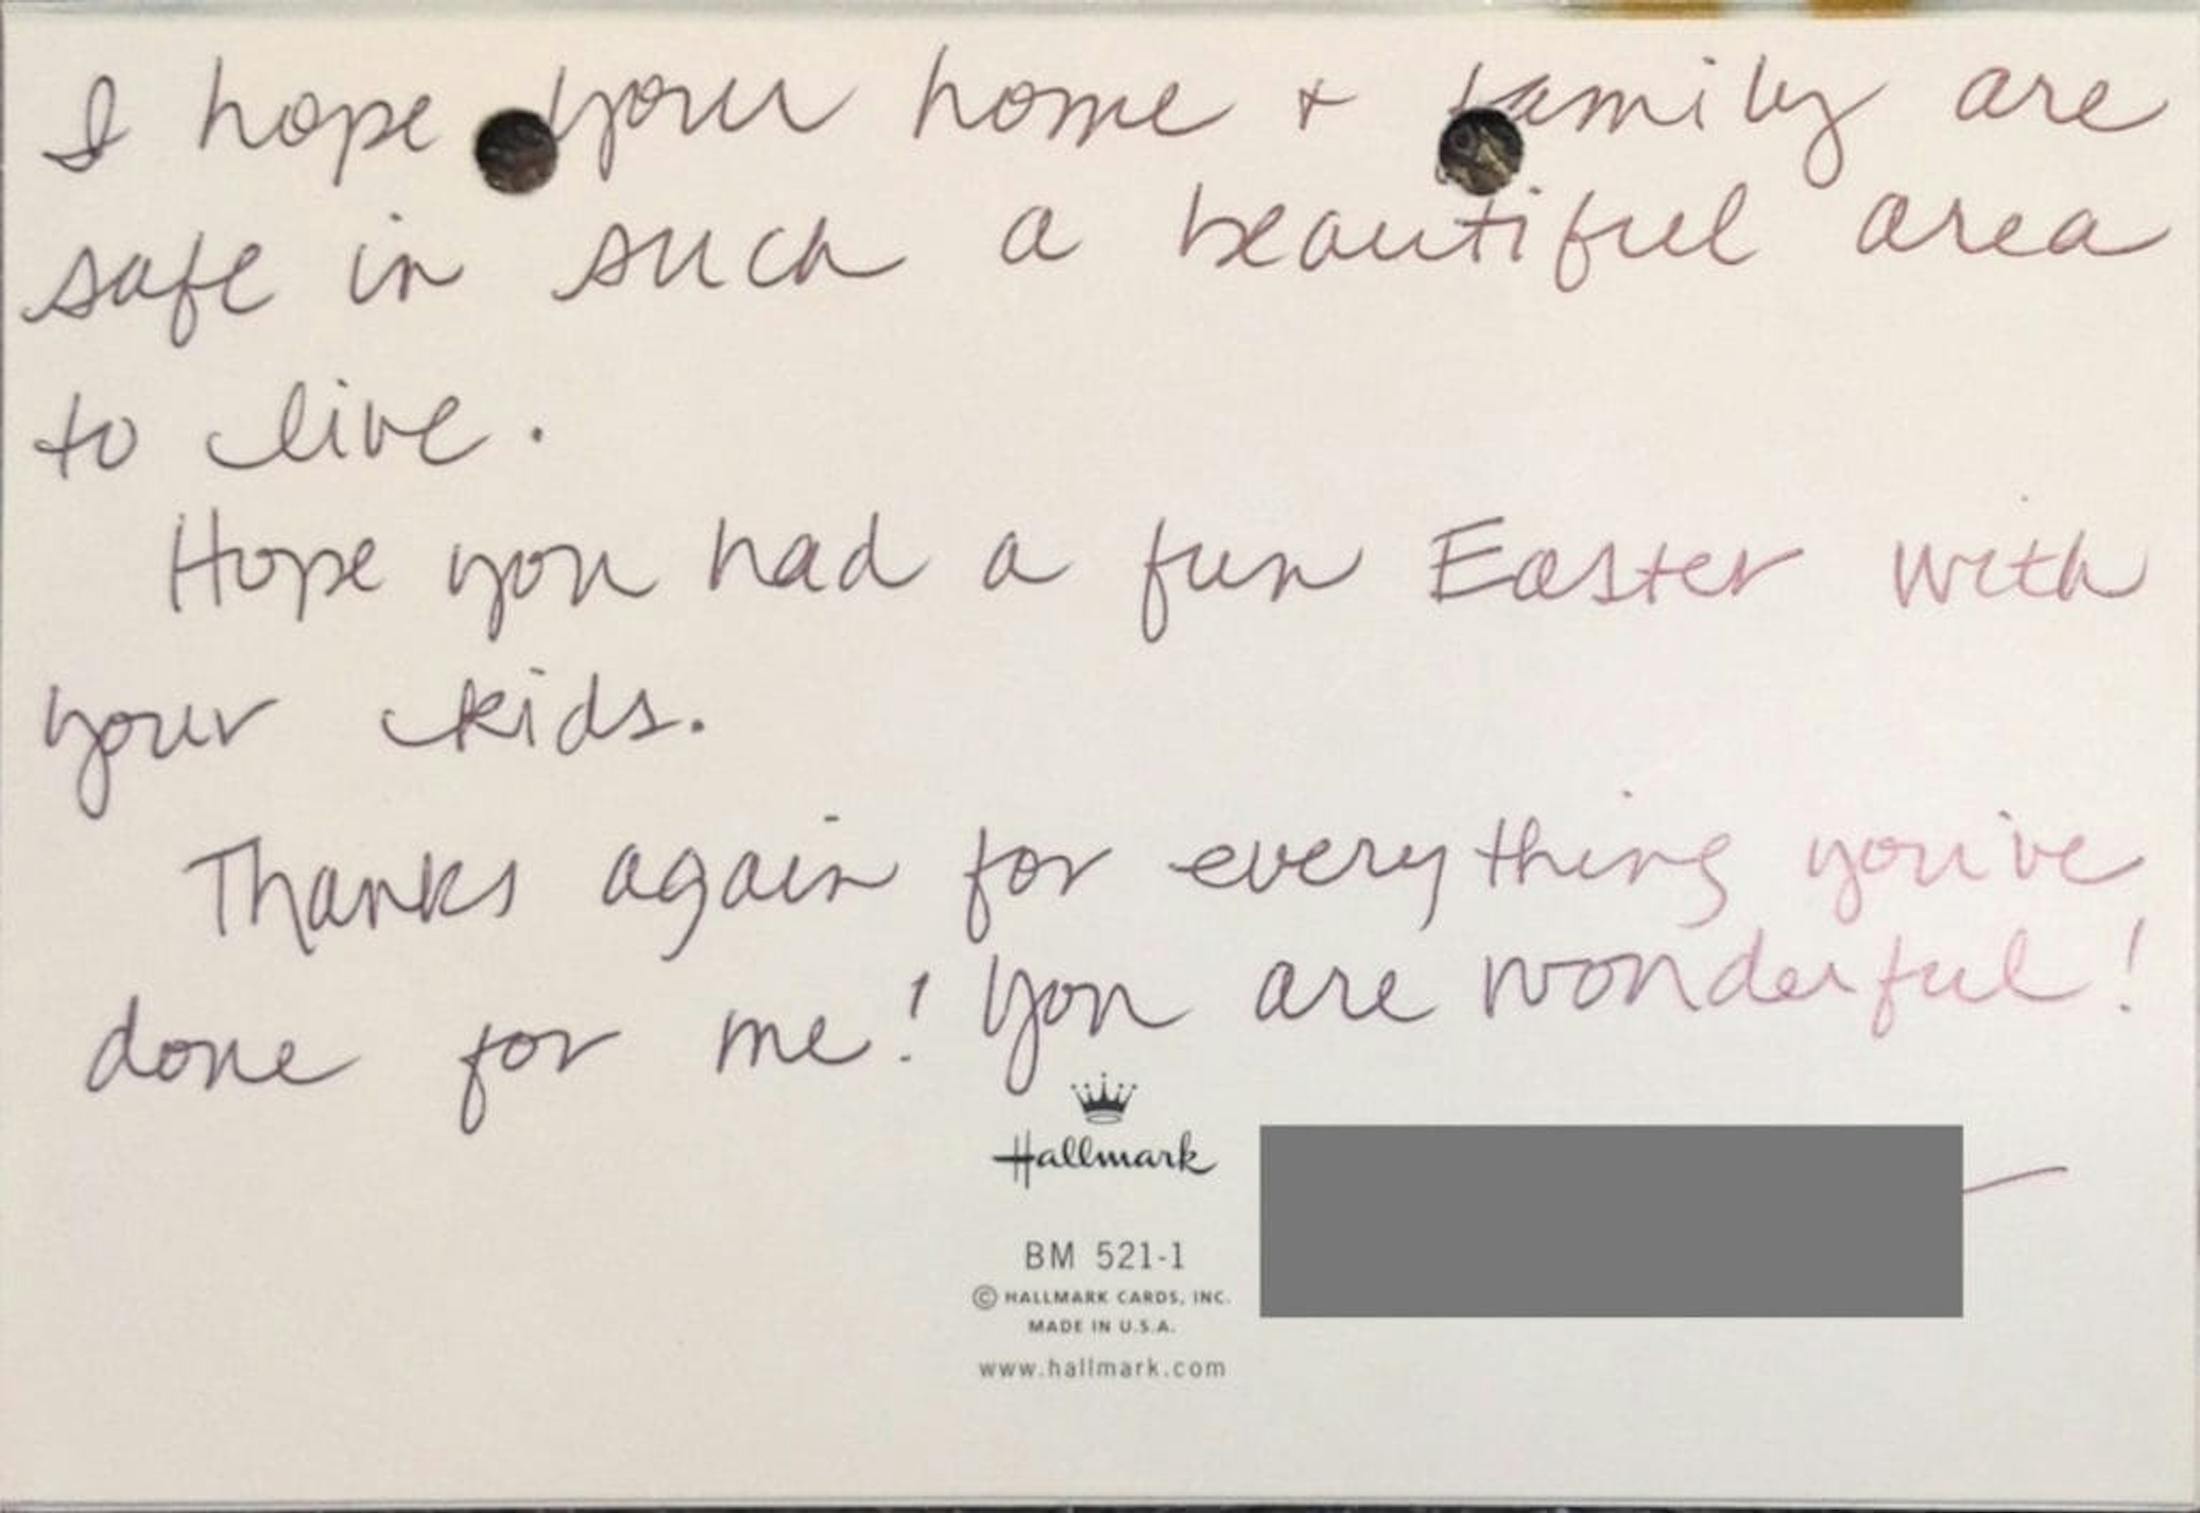 I hope your home + family are
safe in such a beautiful area
to live.
Hope you had a fun Easter with
your kids.
Thanks again for everything you've
done for me! You are wonderful!
Hallmark
BM 521-1
© HALLMARK CARDS, INC.
MADE IN U.S.A.
www.hallmark.com